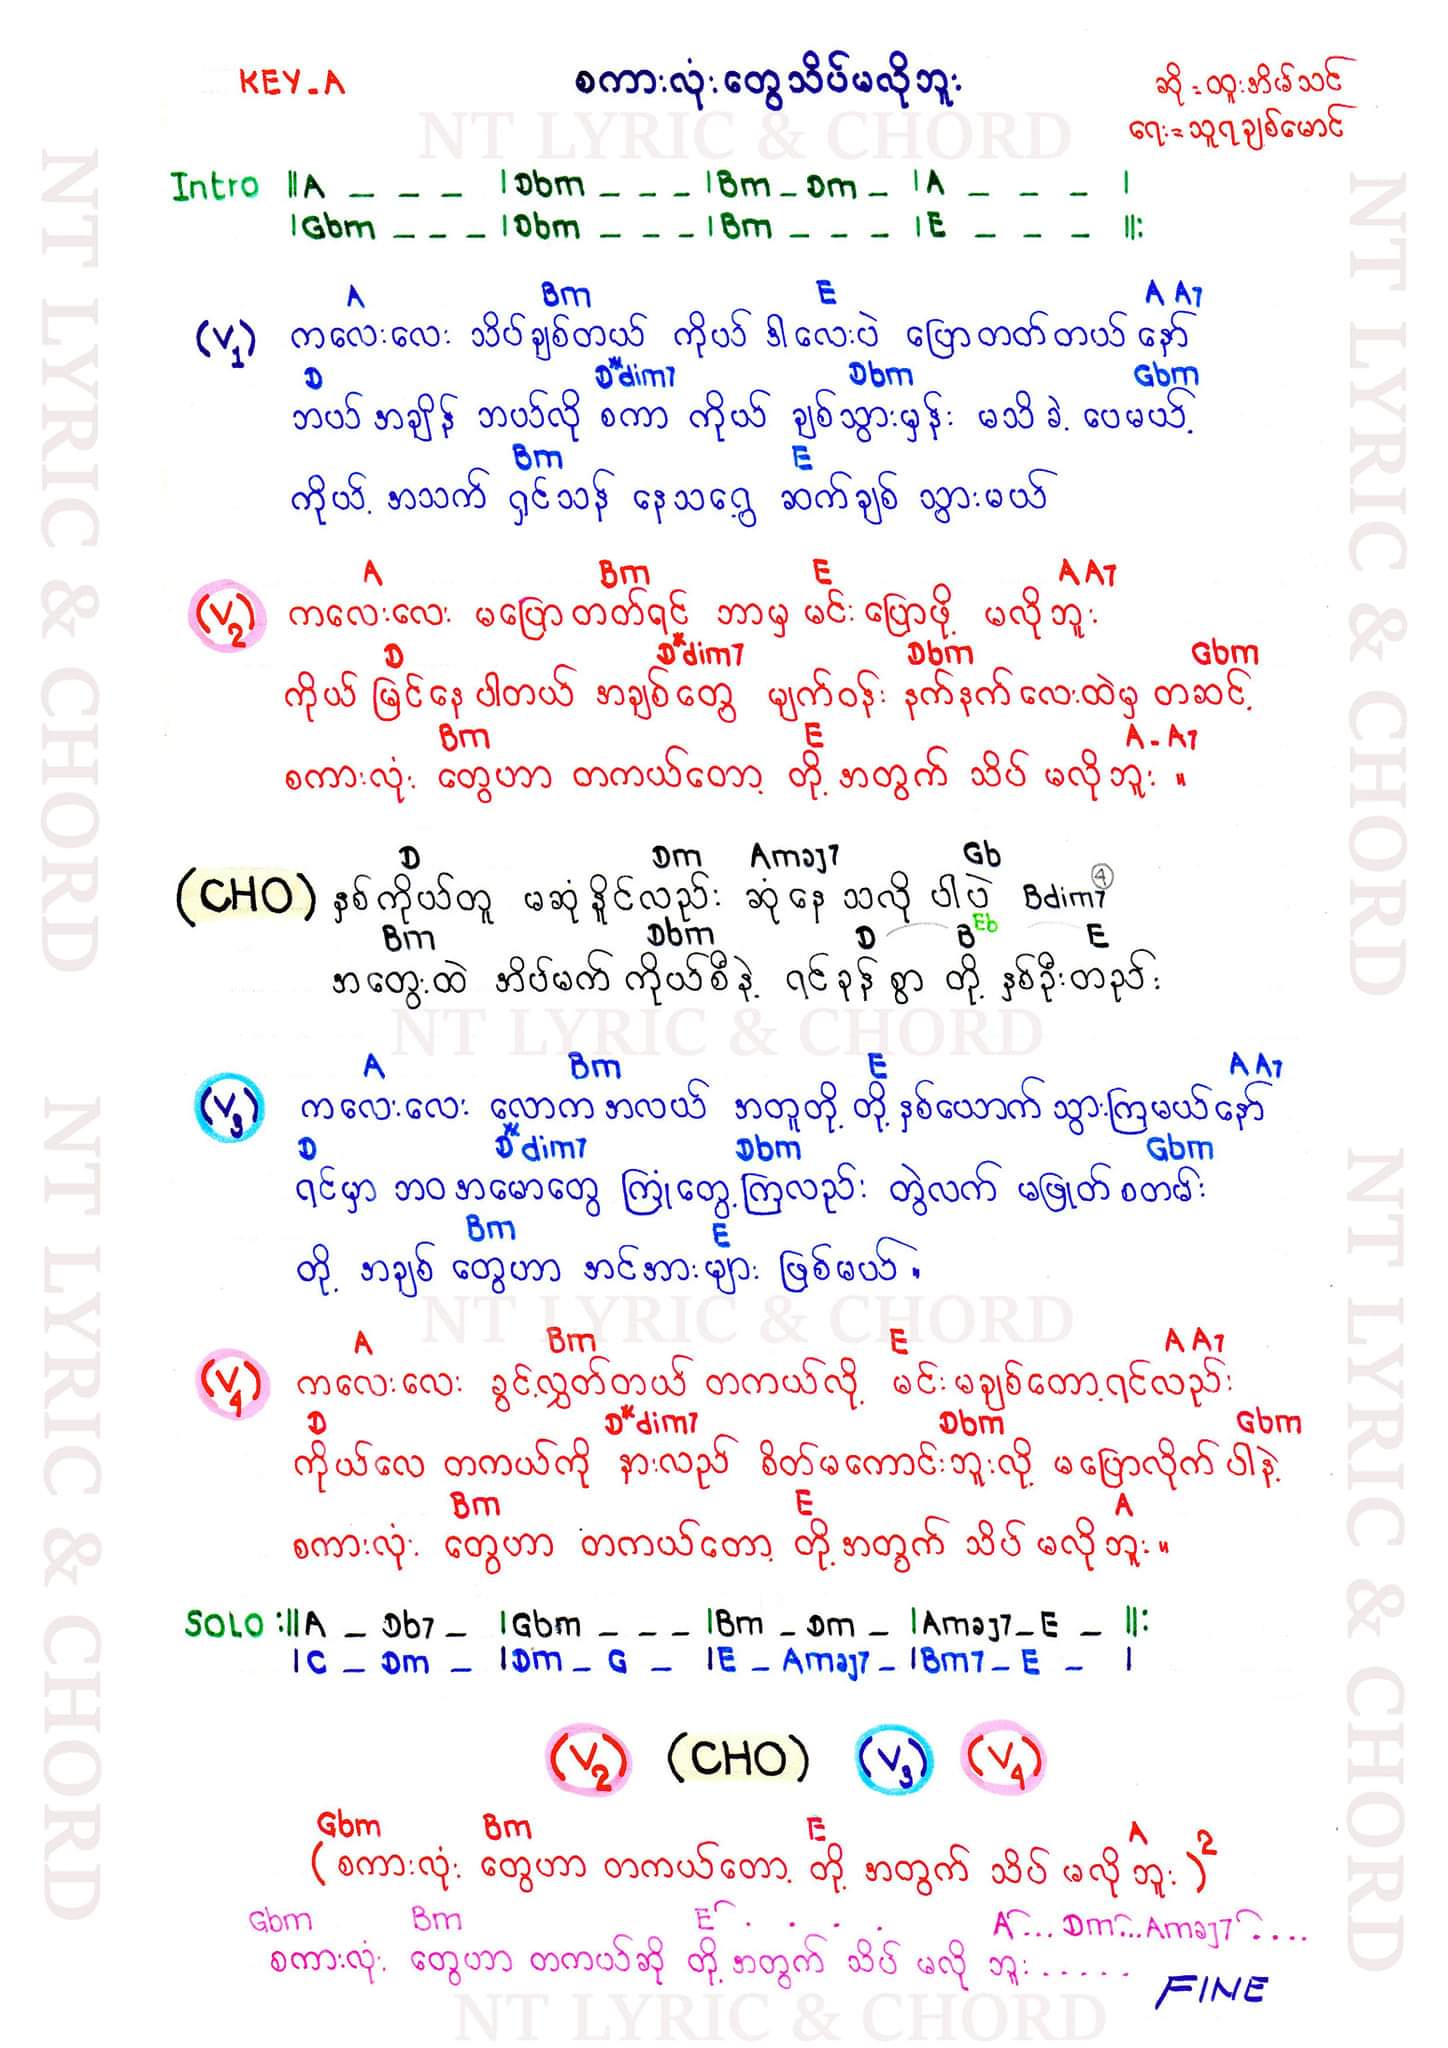 KEY-A
စကားလုံးတွေသိပ်မလိုဘူး
ဆို = ထူးအိမ်သင်
ရေး = သူရချစ်မောင်
NT LYRIC & CHORD
Intro ||A _ _ _ |Dbm _ _ _ |Bm _ Dm _ |A _ _ _ |
|Gbm _ _ _ |Dbm _ _ _ |Bm _ _ _ |E _ _ _ ||:
A Bm E A A7
(V1) ကလေးလေး သိပ်ချစ်တယ် ကိုယ် ဒါလေးပဲ ပြောတတ်တယ်နော်
D D#dim7 Dbm Gbm
ဘယ်အချိန် ဘယ်လို စကာ ကိုယ် ချစ်သွားမှန်း မသိခဲ့ ပေမယ့်
Bm E
ကိုယ့် အသက် ရှင်သန် နေသရွေ့ ဆက်ချစ် သွားမယ်
A Bm E A A7
(V2) ကလေးလေး မပြောတတ်ရင် ဘာမှ မင်းပြောဖို့ မလိုဘူး
D D#dim7 Dbm Gbm
ကိုယ် မြင်နေပါတယ် အချစ်တွေ မျက်ဝန်း နက်နက်လေးထဲမှ တဆင့်
Bm E A - A7
စကားလုံး တွေဟာ တကယ်တော့ တို့အတွက် သိပ် မလိုဘူး ။
D Dm Amaj7 Gb
(CHO) နှစ်ကိုယ်တူ မဆုံနိုင်လည်း ဆုံနေ သလို ပါပဲ Bdim7 ④
Bm Dbm D B Eb E
အတွေးထဲ အိပ်မက် ကိုယ်စီနဲ့ ရင်ခုန်စွာ တို့ နှစ်ဦးတည်း
NT LYRIC & CHORD
A Bm E A A7
(V3) ကလေးလေး လောကအလယ် အတူတို့ တို့နှစ်ယောက် သွားကြမယ်နော်
D D#dim7 Dbm Gbm
ရင်မှာ ဘဝအမောတွေ ကြုံတွေ့ကြလည်း တွဲလက် မဖြုတ်စတမ်း
Bm E
တို့ အချစ် တွေဟာ အင်အားများ ဖြစ်မယ်။
NT LYRIC & CHORD
A Bm E A A7
(V4) ကလေးလေး ခွင့်လွှတ်တယ် တကယ်လို့ မင်းမချစ်တော့ရင်လည်း
D D#dim7 Dbm Gbm
ကိုယ်လေ တကယ်ကို နားလည် စိတ်မကောင်းဘူးလို့ မပြောလိုက်ပါနဲ့
Bm E A
စကားလုံး တွေဟာ တကယ်တော့ တို့အတွက် သိပ် မလိုဘူး။
SOLO :||A _ Db7 _ |Gbm _ _ _ |Bm _ Dm _ |Amaj7 _ E _ ||:
|C _ Dm _ |Dm _ G _ |E _ Amaj7 _ |Bm7 _ E _ |
(V2) (CHO) (V3) (V4)
Gbm Bm E A
(စကားလုံး တွေဟာ တကယ်တော့ တို့ အတွက် သိပ် မလိုဘူး)2
Gbm Bm E . . . . A ... Dm ... Amaj7 ....
စကားလုံး တွေဟာ တကယ်ဆို တို့အတွက် သိပ် မလို ဘူး.....
FINE
NT LYRIC & CHORD
NT LYRIC & CHORD
NT LYRIC & CHORD
NT LYRIC & CHORD
NT LYRIC & CHORD